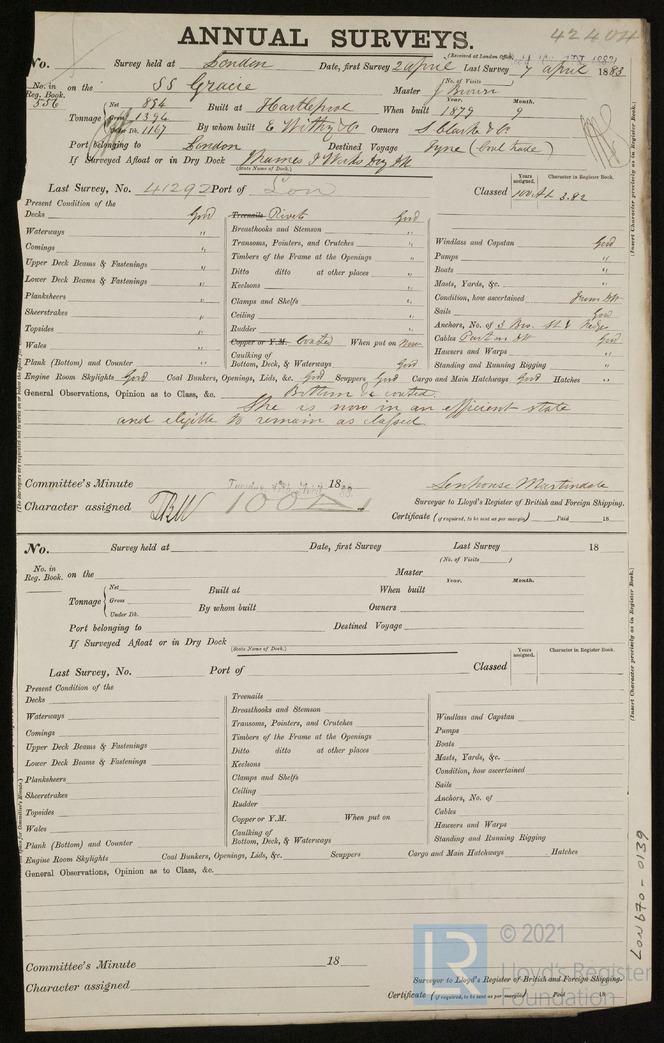 ANNUAL SURVEYS.
42404
(Received at London Office
No. Survey held at London Date, first Survey 2 April Last Survey 7 April 1883
(No. of Visits )
No. in Reg. Book. on the SS Gracie Master J Brown
556
Tonnage Net 854 Built at Hartlepool When built Year. 1879 Month. 9
Gross 1394
Under Dk. 1167 By whom built E. Withy & Co Owners S Clarke & Co
Port belonging to London Destined Voyage Tyne (Coal trade)
If Surveyed Afloat or in Dry Dock Thames I Works Dry Dk
(State Name of Dock.)
Last Survey, No. 41292 Port of Lon Classed Years assigned. 100A1 Character in Register Book. 3.82
Present Condition of the
Decks Good
Waterways "
Comings "
Upper Deck Beams & Fastenings "
Lower Deck Beams & Fastenings "
Planksheers "
Sheerstrakes "
Topsides "
Wales "
Plank (Bottom) and Counter "
Treenails Rivets Good
Breasthooks and Stemson "
Transoms, Pointers, and Crutches "
Timbers of the Frame at the Openings "
Ditto ditto at other places "
Keelsons "
Clamps and Shelfs "
Ceiling "
Rudder "
Copper or Y.M. Coated When put on Now
Caulking of
Bottom, Deck, & Waterways Good
Windlass and Capstan Good
Pumps "
Boats "
Masts, Yards, &c. "
Condition, how ascertained From Dk
Sails Good
Anchors, No. of 3 Bro. St & Kedge
Cables Part on Dk Good
Hawsers and Warps "
Standing and Running Rigging "
Engine Room Skylights Good Coal Bunkers, Openings, Lids, &c. Good Scuppers Good Cargo and Main Hatchways Good Hatches "
General Observations, Opinion as to Class, &c. Bottom &c coated.
She is now in an efficient state
and eligible to remain as classed.
Committee's Minute Tuesday 18 83.
Character assigned 100A1
Senhouse Martindale
Surveyor to Lloyd's Register of British and Foreign Shipping.
Certificate (if required, to be sent as per margin) Paid 18
(Insert Character precisely as in Register Book.)
No. Survey held at Date, first Survey Last Survey 18
(No. of Visits )
No. in Reg. Book. on the Master
Tonnage Net Built at When built Year. Month.
Gross
Under Dk. By whom built Owners
Port belonging to Destined Voyage
If Surveyed Afloat or in Dry Dock
(State Name of Dock.)
Last Survey, No. Port of Classed Years assigned. Character in Register Book.
Present Condition of the
Decks
Waterways
Comings
Upper Deck Beams & Fastenings
Lower Deck Beams & Fastenings
Planksheers
Sheerstrakes
Topsides
Wales
Plank (Bottom) and Counter
Treenails
Breasthooks and Stemson
Transoms, Pointers, and Crutches
Timbers of the Frame at the Openings
Ditto ditto at other places
Keelsons
Clamps and Shelfs
Ceiling
Rudder
Copper or Y.M. When put on
Caulking of
Bottom, Deck, & Waterways
Windlass and Capstan
Pumps
Boats
Masts, Yards, &c.
Condition, how ascertained
Sails
Anchors, No. of
Cables
Hawsers and Warps
Standing and Running Rigging
Engine Room Skylights Coal Bunkers, Openings, Lids, &c. Scuppers Cargo and Main Hatchways Hatches
General Observations, Opinion as to Class, &c.
Committee's Minute 18
Character assigned
Surveyor to Lloyd's Register of British and Foreign Shipping.
Certificate (if required, to be sent as per margin) Paid 18
(Insert Character precisely as in Register Book.)
LON 670-0139
LR © 2021
Lloyd's Register
Foundation